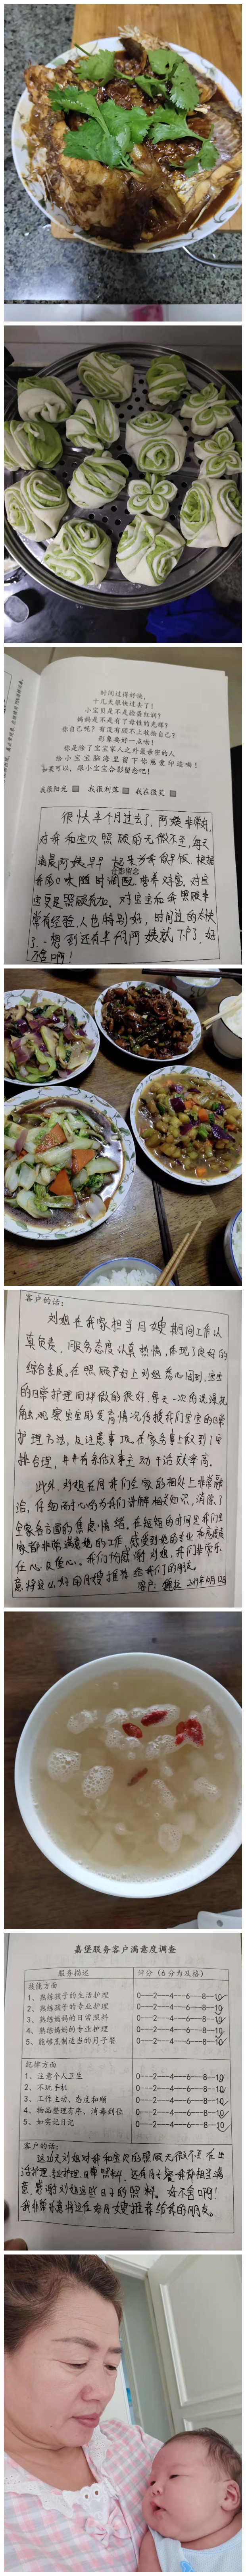 时间过得好快,
十几天很快过去了!
小宝贝是不是脸蛋红润?
妈妈是不是有了母性的光辉?
你自己呢?有没有顾不上收拾自己?
形象要好一点哟!
你是除了宝宝家人之外最亲密的人
给小宝宝脑海里留下你慈爱印迹哦!
如果可以,跟小宝宝合影留念吧!
我很阳光 我很利落 我在微笑
合影留念
很快半个月过去了,阿姨非常好,
对我和宝贝照顾的无微不至,每天
清晨阿姨早早起来为我做早饭,根据
我的口味随时调配营养对营,对宝
宝更是照顾有加,对宝宝和我照顾非
常有经验,人也特别好,时间过的太快
了,想到还有半个月阿姨就下户,好
不舍啊!
客户的话:
刘姐在我家担当月嫂期间工作认
真负责,服务态度认真热情,体现了良好的
综合素质。在照顾产妇上刘姐悉心周到,宝宝
的日常护理同样做的很好。每天一次的洗澡抚
触,观察宝宝的发育情况传授我们宝宝的日常
护理方法,及注意事项。在家务事上做到了安
排合理,并井有条做事主动干活效率高。
此外,刘姐在同我们全家的相处上非常融
洽,仔细耐心的为我们讲解相关知识,消除了
全家各方面的焦虑情绪。在短短的时间里我们全
家都非常满意她的工作,感受到她的专业
任心及爱心。我们怕感谢刘姐,我们非常乐
意将这么好的月嫂推荐给我们的朋友。
客户: 2019年10月12日
嘉堡服务客户满意度调查
服务描述 评分(6分为及格)
技能方面
1、熟练孩子的生活护理 0—2—4—6—8—10
2、熟练孩子的专业护理 0—2—4—6—8—10
3、熟练妈妈的日常照料 0—2—4—6—8—10
4、熟练妈妈的专业护理 0—2—4—6—8—10
5、能够烹制适当的月子餐 0—2—4—6—8—10
纪律方面
1、注意个人卫生 0—2—4—6—8—10
2、不玩手机 0—2—4—6—8—10
3、工作主动、态度和顺 0—2—4—6—8—10
4、物品整理有序、消毒到位 0—2—4—6—8—10
5、如实记日记 0—2—4—6—8—10
客户的话:
这26天刘姐对我和宝贝的照顾无微不至,在生
活护理,专业护理,日常照料,还有月子餐我都相当满
意,感谢刘姐这些日子的照料。好不舍啊!
我非常乐意将这位好月嫂推荐给我的朋友。